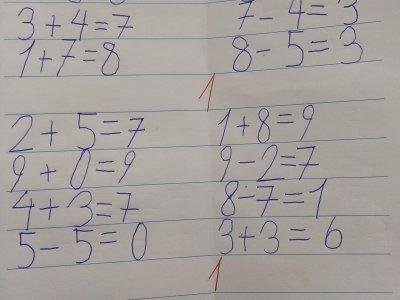 3 + 4 = 7
1 + 7 = 8
7 - 4 = 3
8 - 5 = 3
1
2 + 5 = 7
9 + 0 = 9
4 + 3 = 7
5 - 5 = 0
1 + 8 = 9
9 - 2 = 7
8 - 7 = 1
3 + 3 = 6
1